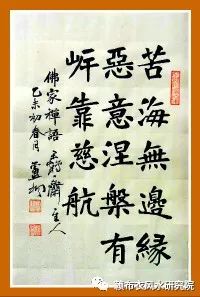 苦海無邊緣
惡意涅槃有
岍靠慈航
佛家禪語 主人
乙未初春月
赖布衣风水研究院